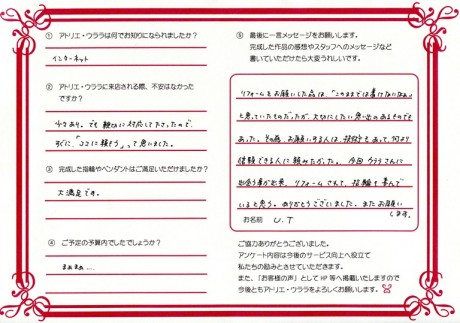 ① アトリエ・ウララは何でお知りになりましたか?
インターネット
② アトリエ・ウララに来店される際、不安はなかった
ですか?
少々あり。でも親切に対応して下さったので、
すぐに、「ココに頼もう」って思いました。
③ 完成した指輪やペンダントはご満足いただけましたか?
大満足です。
④ ご予定の予算内でしたでしょうか?
まぁまぁ…。
⑤ 最後に一言メッセージをお願いします。
完成した作品の感想やスタッフへのメッセージなど
書いていただけたら大変うれしいです。
リフォームをお願いした品は、「このままでは着けないなぁ」
と思っていたものだったが、大切にしたい思い出のあるものでも
あった。その為、お願いする人は、技術もあって、何より
信頼できる人に頼みたかった。今回ウララさんに
出会う事が出来、リフォームされて、指輪も喜んで
いると思う。ありがとうございました。またお願い
します。
お名前 U.T
ご協力ありがとうございました。
アンケート内容は今後のサービス向上へ役立て
私たちの励みとさせていただきます。
また、「お客様の声」として HP 等へ掲載いたしますので
今後ともアトリエ・ウララをよろしくお願いします。